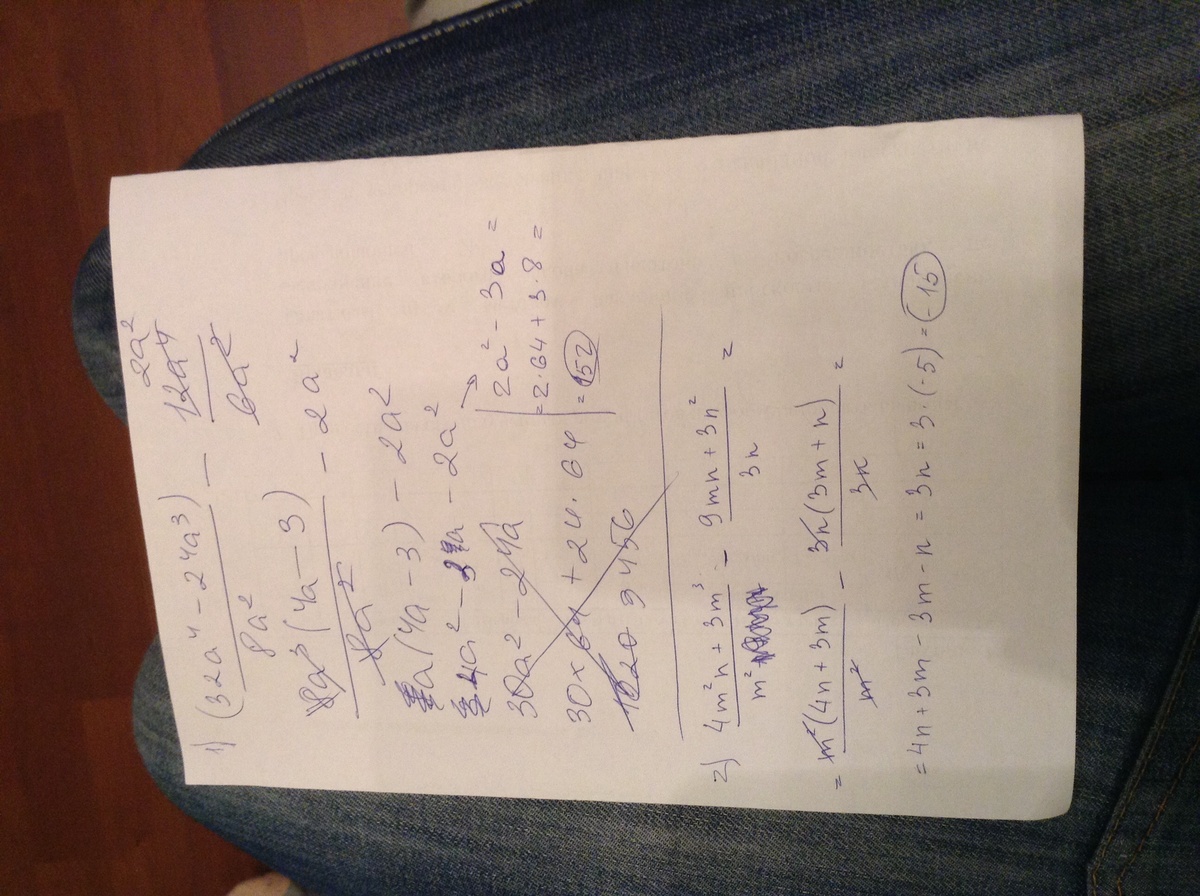 1) (32a⁴ - 24a³) / 8a² - 12a⁴ / 6a² 2a²
8a³(4a - 3) / 8a² - 2a²
a(4a - 3) - 2a²
4a² - 3a - 2a² → 2a² - 3a =
30a² - 24a = 2·64 + 3·8 =
30×64 + 24·64 = 152
1020 9456
2) (4m²n + 3m³) / m² - (9mn + 3n²) / 3n =
= m²(4n + 3m) / m² - 3n(3m + n) / 3n =
= 4n + 3m - 3m - n = 3n = 3·(-5) = -15